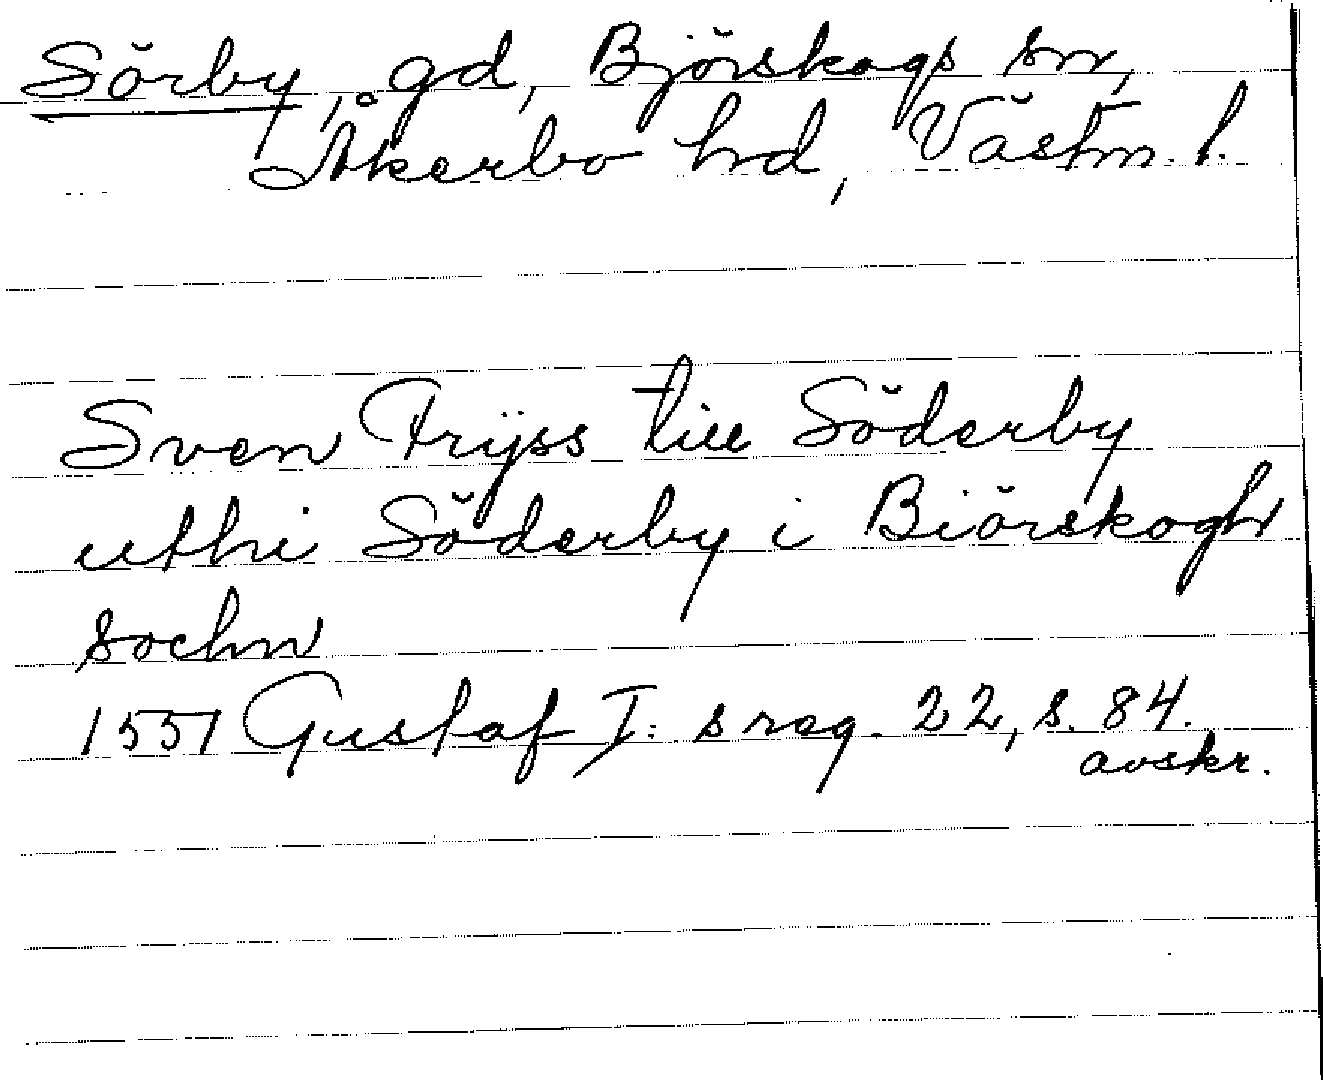 Sörby, gd, Björskogs sn,
Åkerbo hd, Västm. l.
Sven Fryss till Söderby
uthi Söderby i Biörskogh
sochn
1551 Gustaf I:s reg. 22, s. 84.
avskr.